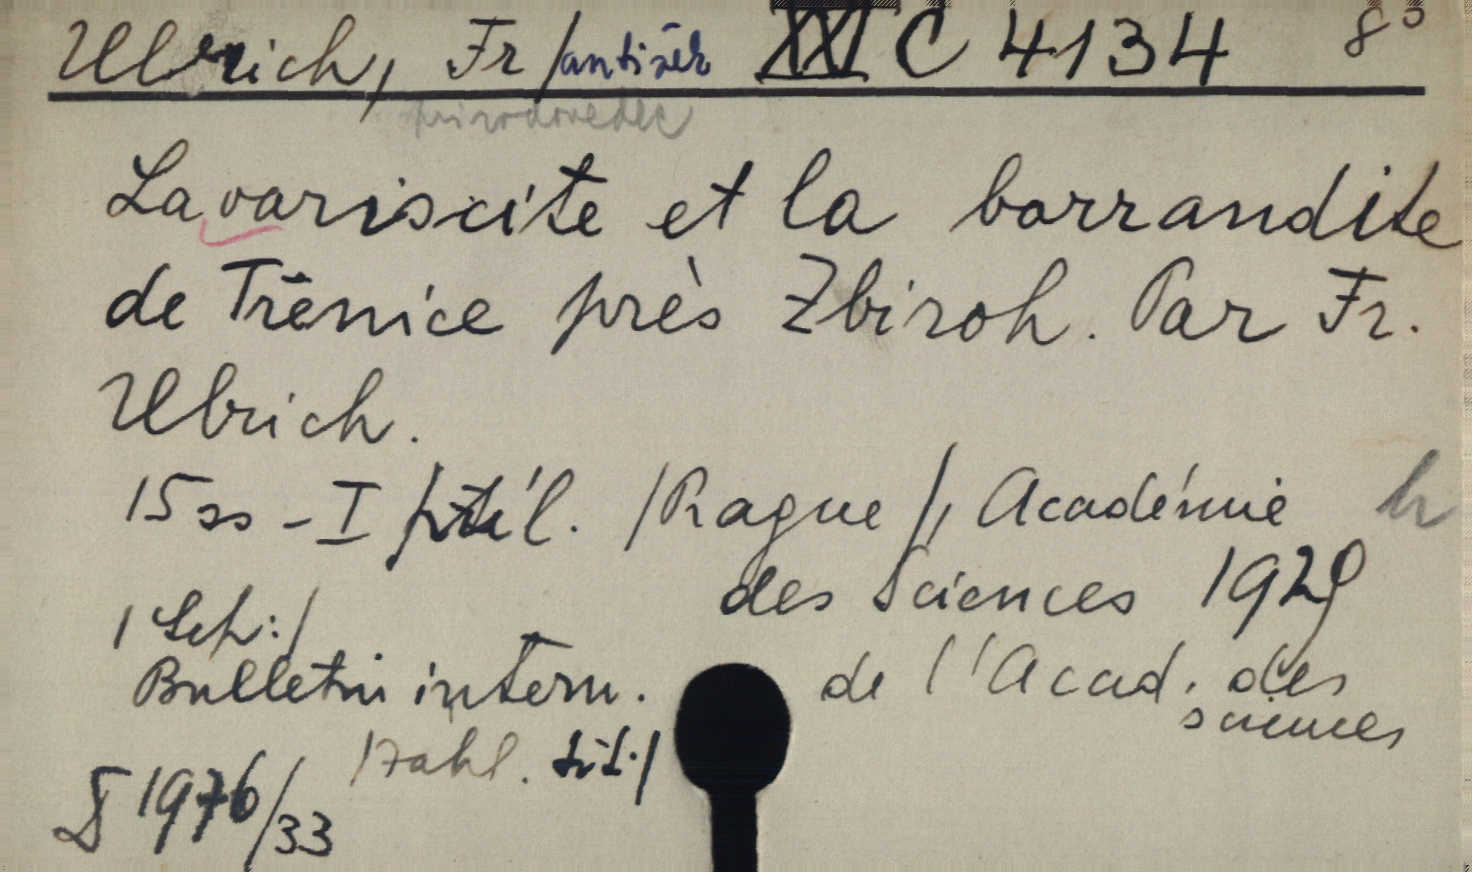 Ulrich, Fr/antišek XXI C 4134 8°
přírodovědec
La variscite et la barrandite
de Třenice près Zbiroh. Par Fr.
Ulrich.
15 ss - I příl. /Prague/, Académie
des Sciences 1929
Bulletin intern. de l'Acad. des
sciences
/záhl. tit./
1976/33